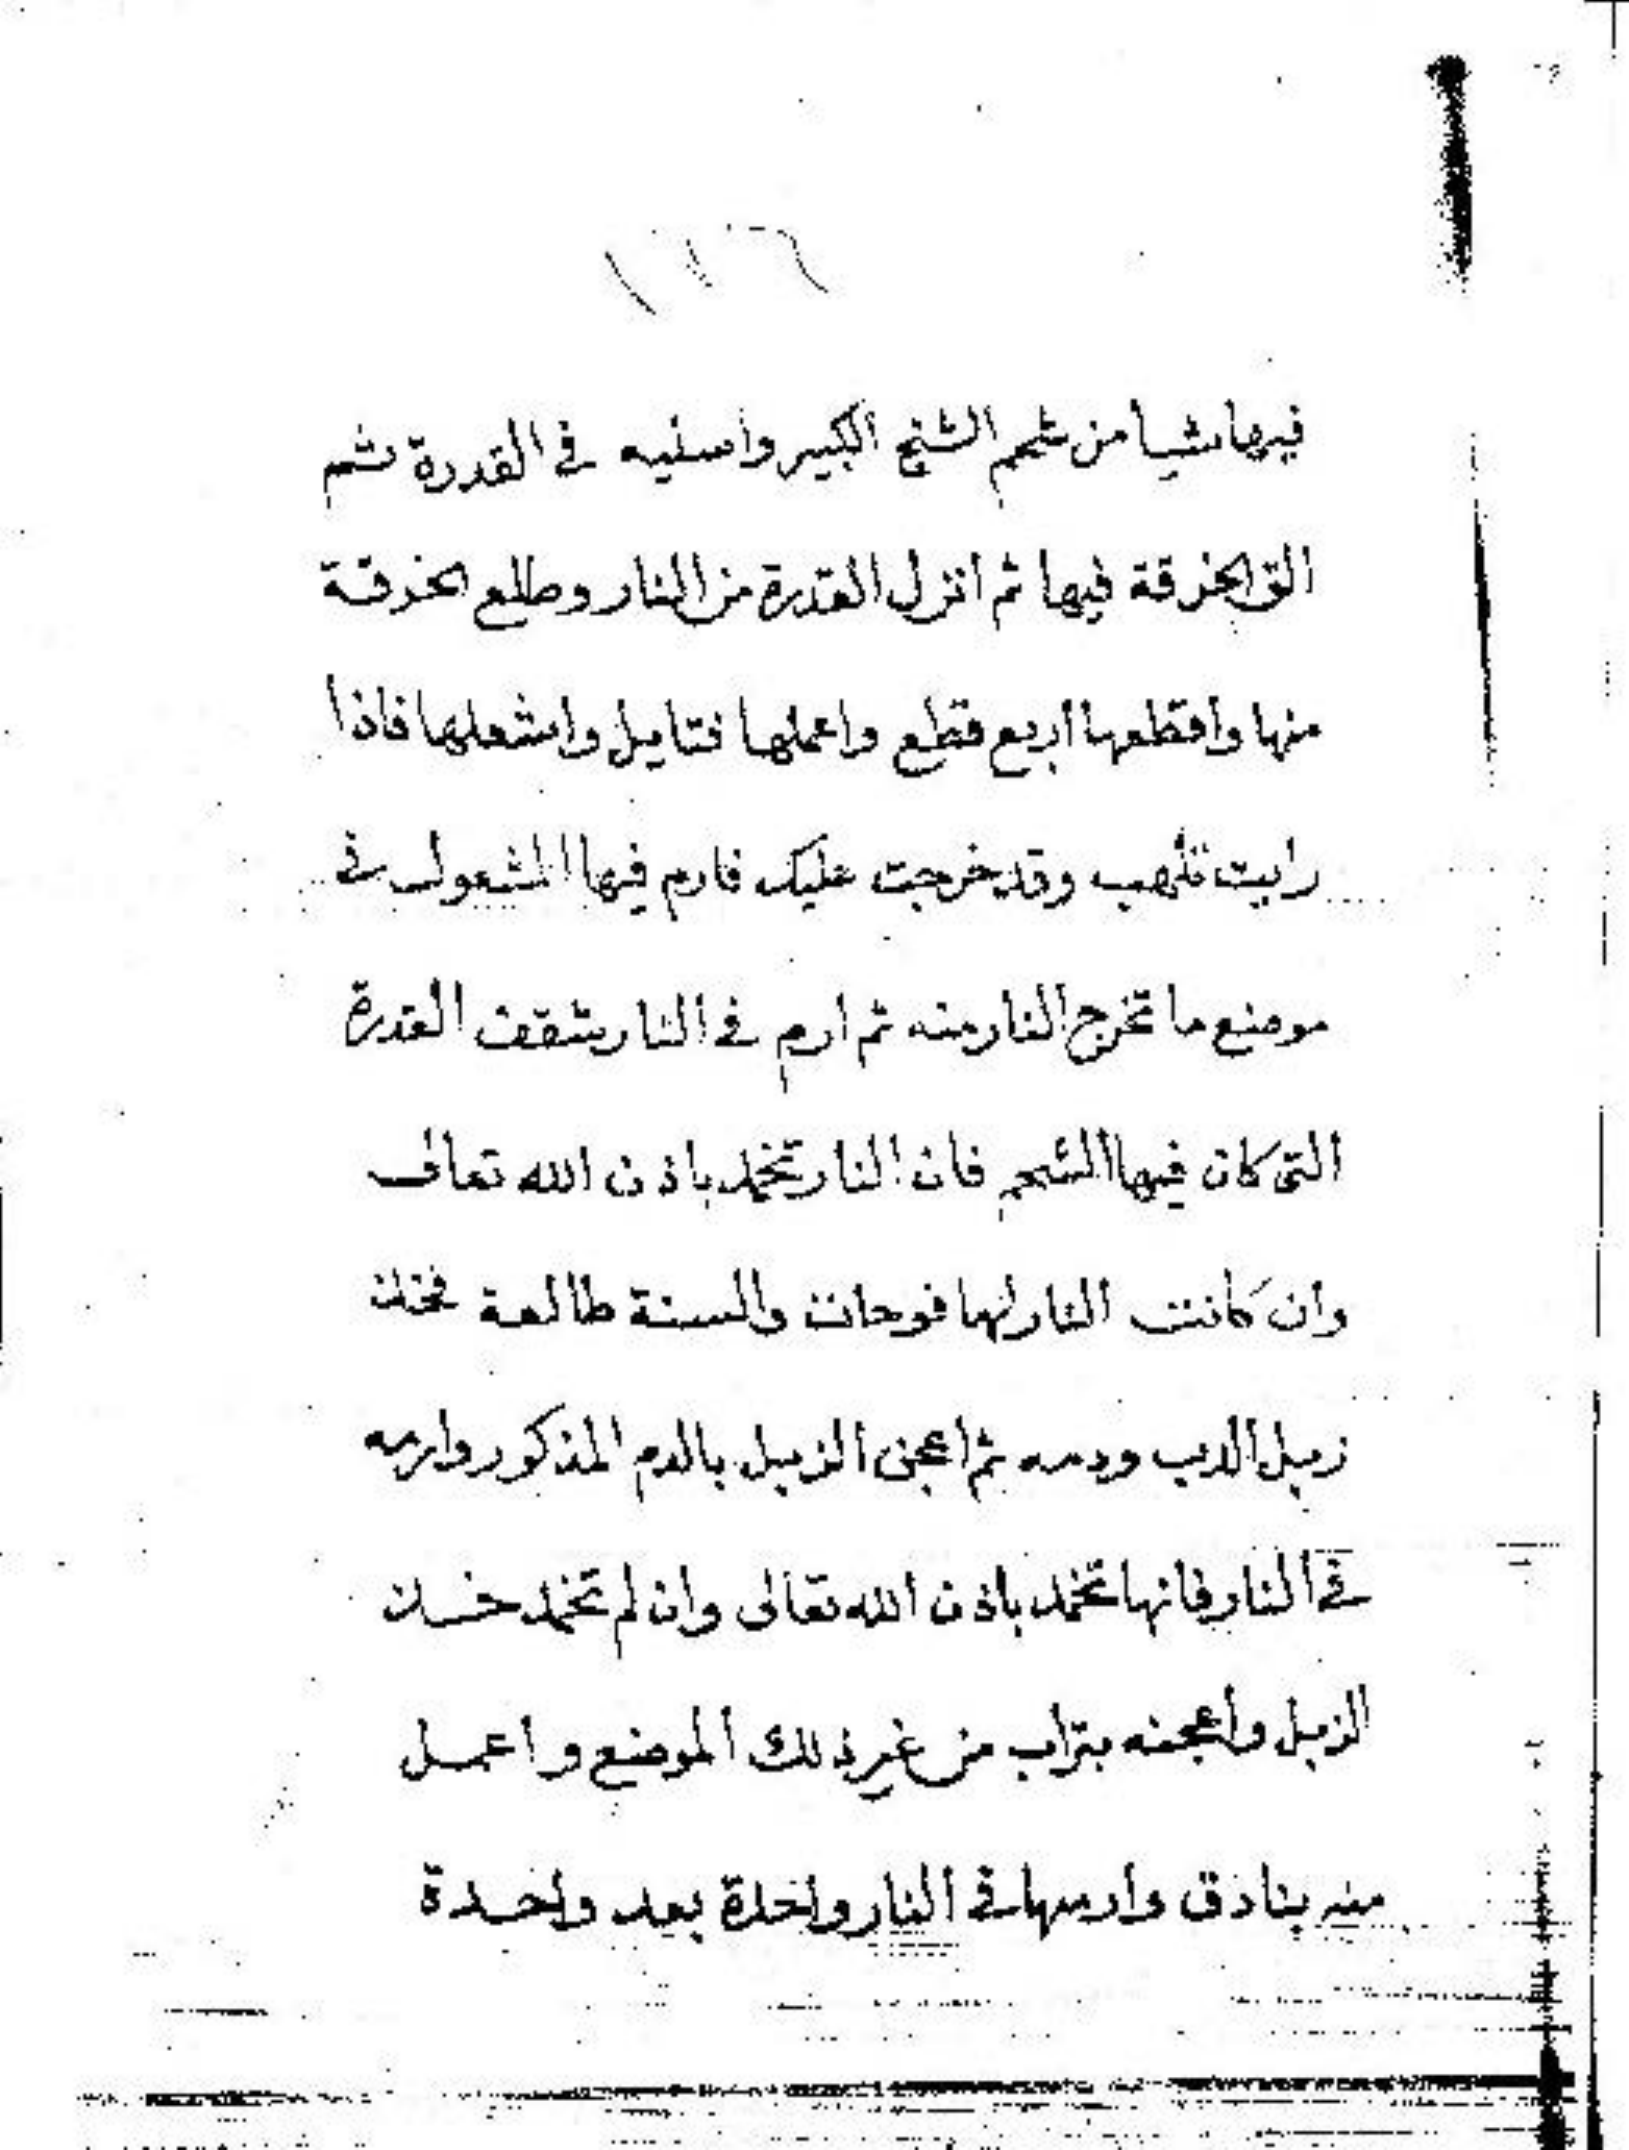 ١٢٦
فيها شيا من شحم الشنج الكبير واسليه في القدرة ثم
الق الخرقة فيها ثم انزل القدرة من النار وطلع الخرقة
منها واقطعها اربع قطع واعملها فتايل واشعلها فاذا
رايت تلهب وقد خرجت عليك فارم فيها المشعول في
موضع ما تخرج النار منه ثم ارم في النار شقف القدرة
التي كان فيها الشحم فان النار تخمد باذن الله تعالى
وان كانت النار لها فوحات والسنة طالعة فخذ
زبيل الدب ودمه ثم اعجن الزبيل بالدم المذكور وارمه
في النار فانها تخمد باذن الله تعالى وان لم تخمد خذ
الزبيل واعجنه بتراب من غير ذلك الموضع واعمل
منه بنادق وارميها في النار واحدة بعد واحدة